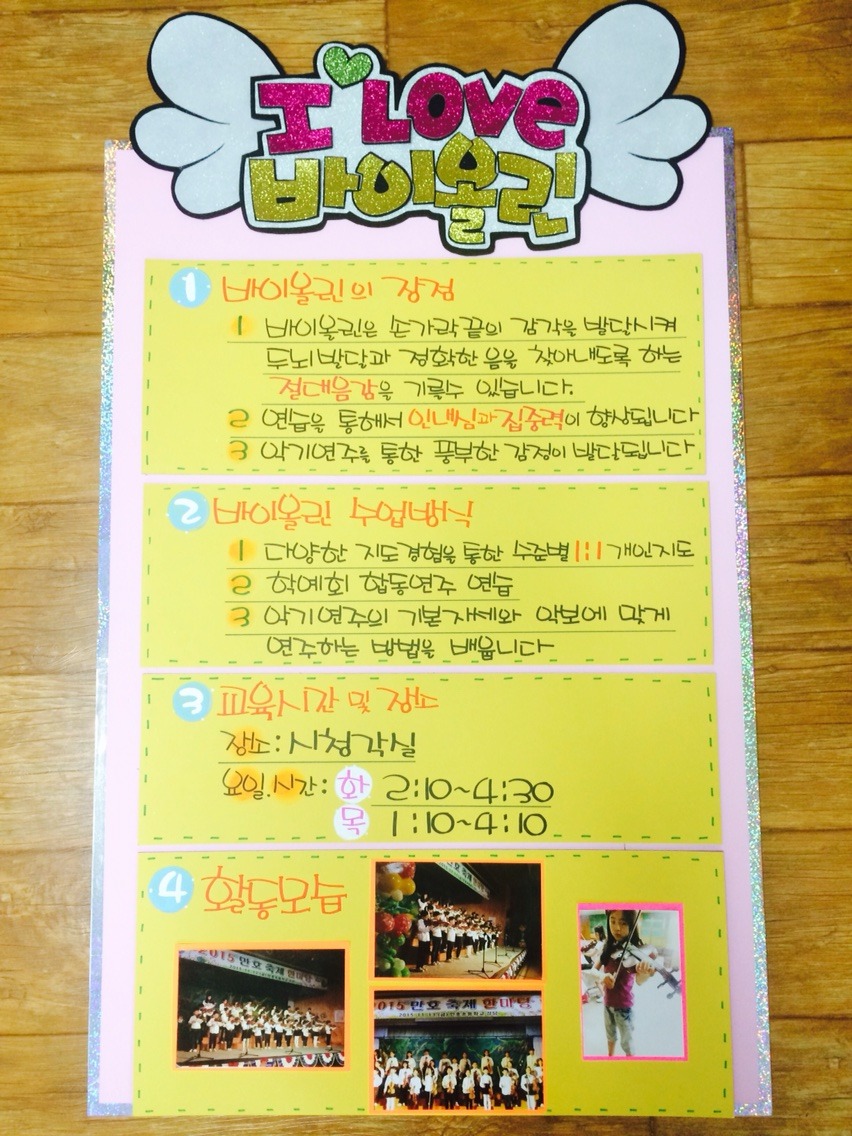 I Love
바이올린
1 바이올린의 장점
1 바이올린은 손가락끝의 감각을 발달시켜
두뇌발달과 정확한 음을 찾아내도록 하는
절대음감을 기를수 있습니다.
2 연습을 통해서 인내심과 집중력이 향상됩니다
3 악기연주를 통한 풍부한 감정이 발달됩니다
2 바이올린 수업방식
1 다양한 지도경험을 통한 수준별 1:1 개인지도
2 학예회 합동연주 연습
3 악기연주의 기본자세와 악보에 맞게
연주하는 방법을 배웁니다
3 교육시간 및 장소
장소 : 시청각실
요일.시간 : 화 2:10~4:30
목 1:10~4:10
4 활동모습
2015 만호 축제 한마당
2015 만호 축제 한마당